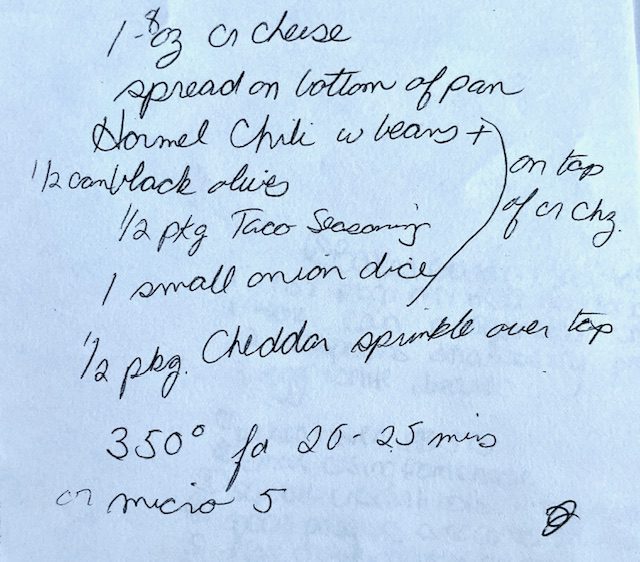 1 - 8 oz cr cheese
spread on bottom of pan
Hormel Chili w beans +
1/2 can black olives
on top
1/2 pkg Taco Seasoning
of cr chz.
1 small onion dice
1/2 pkg. Cheddar sprinkle over top
350° for 20-25 mins
or micro 5